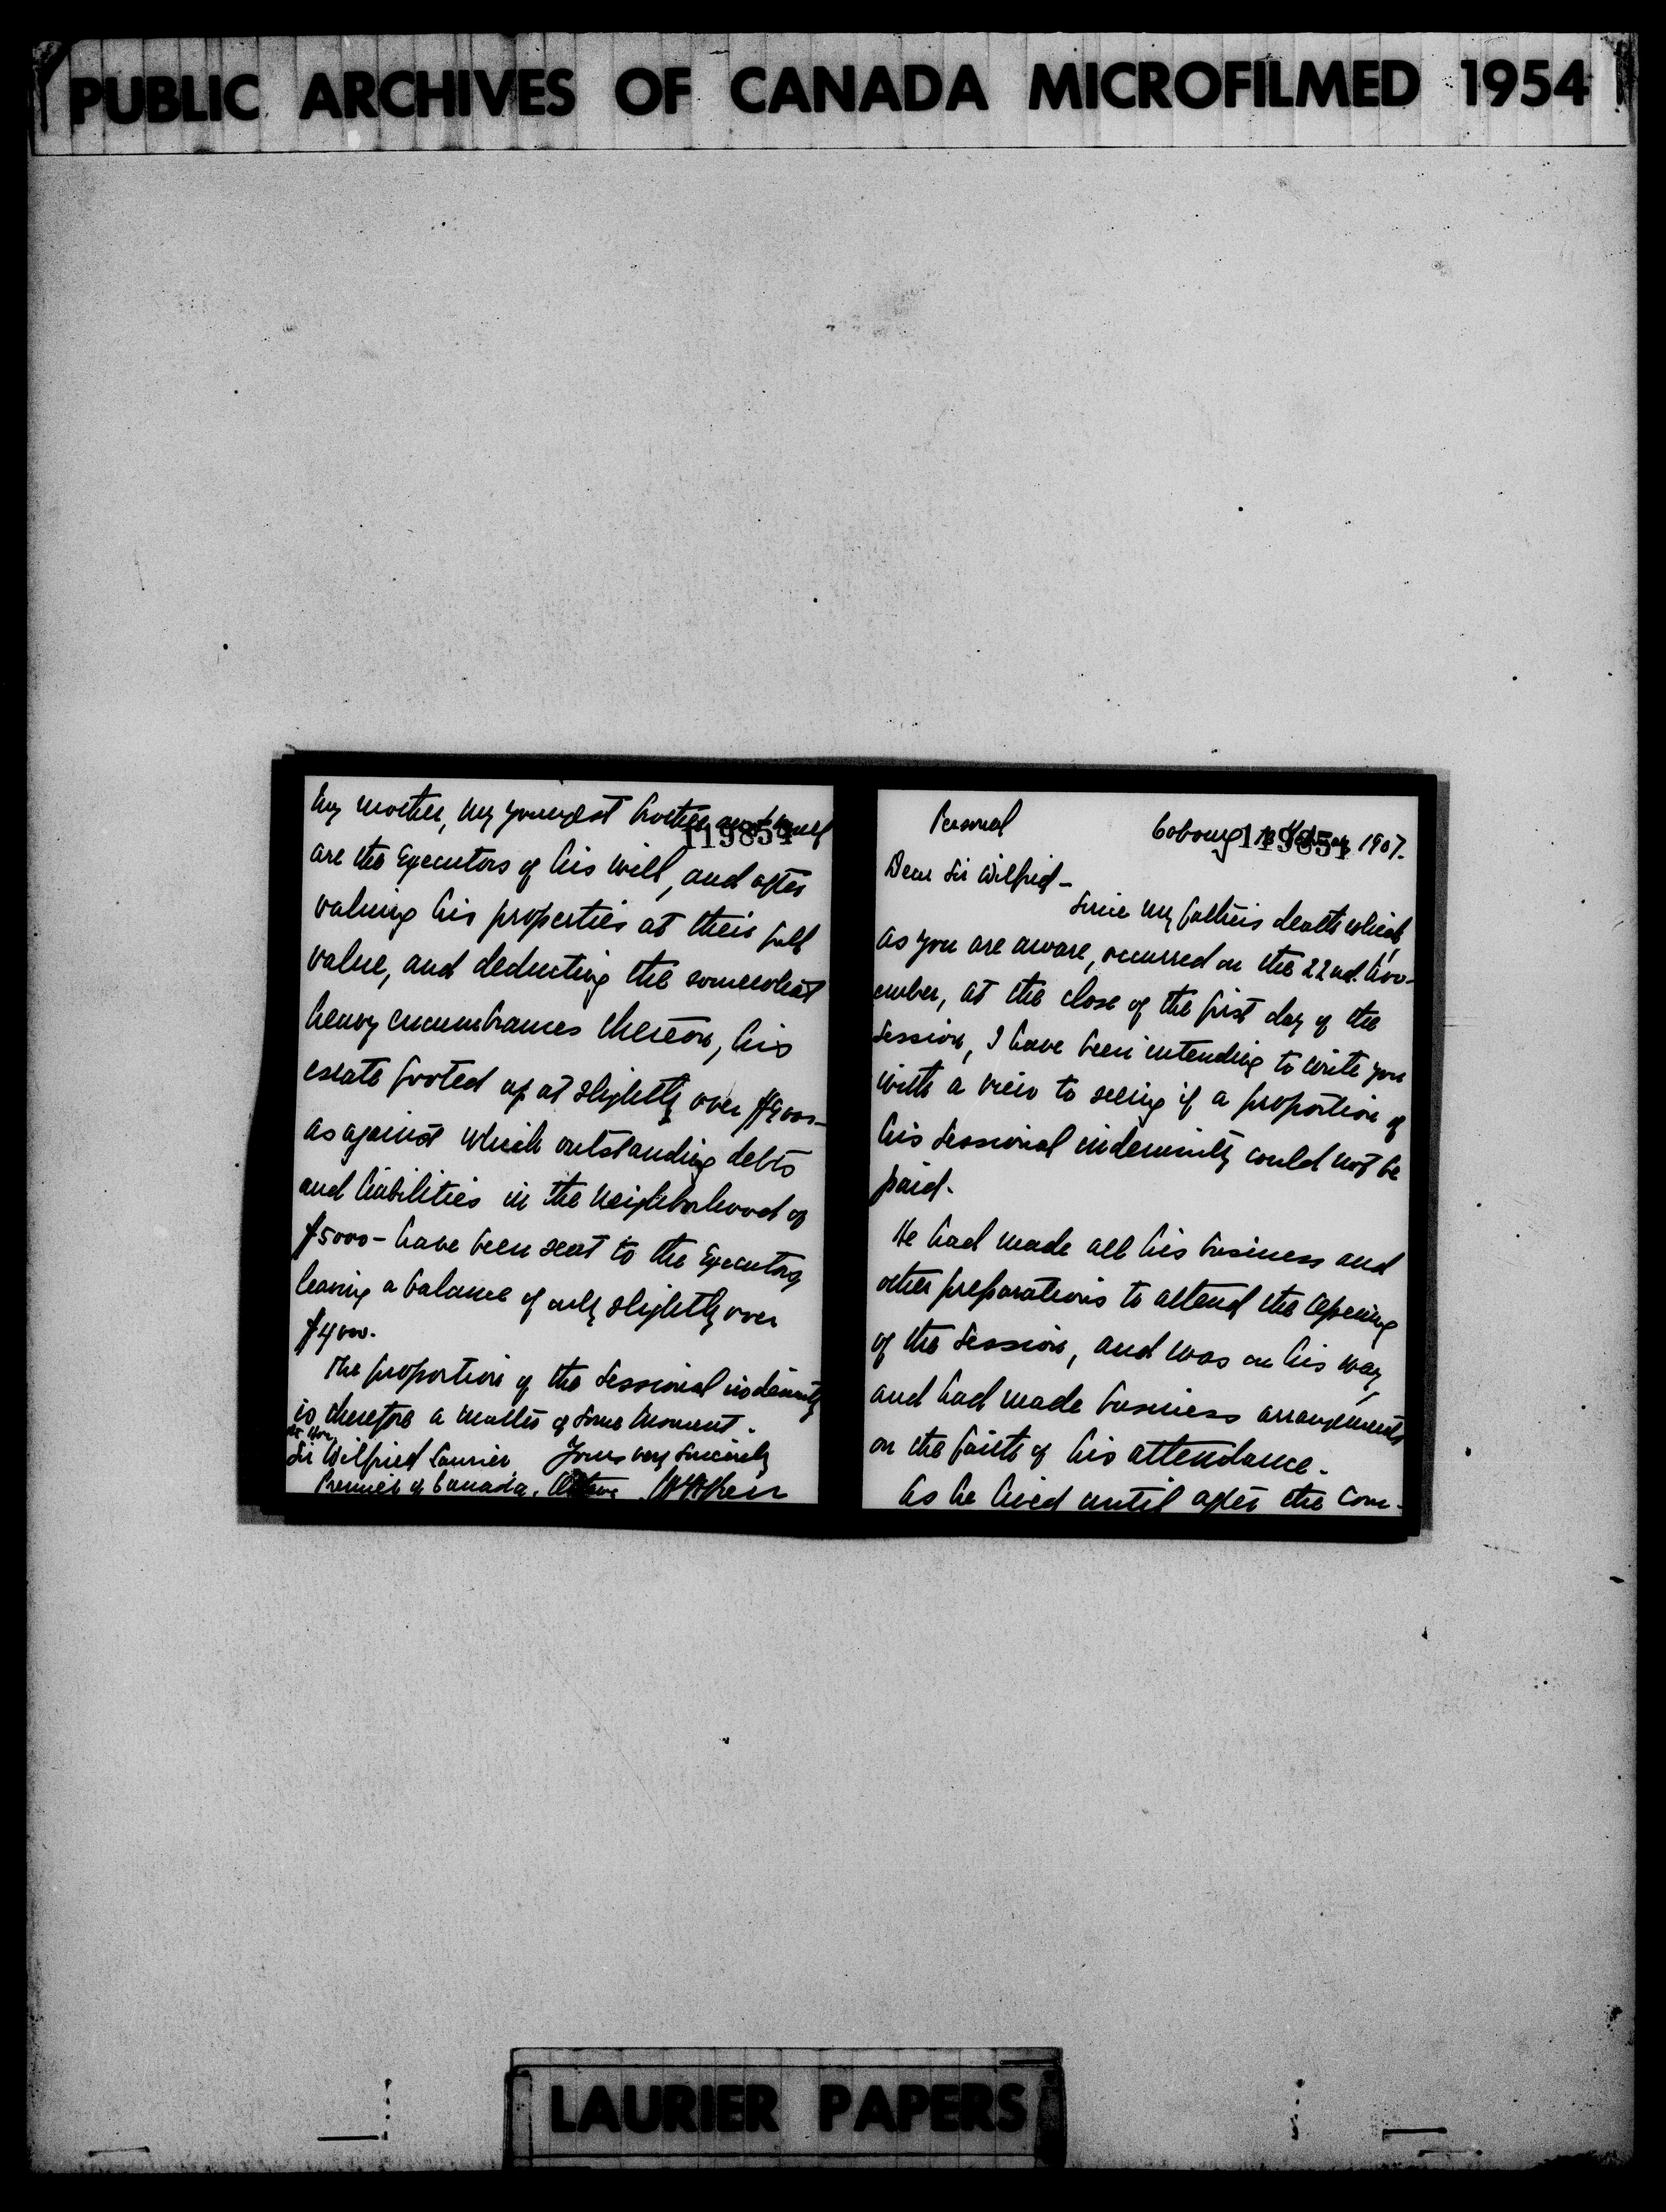 PUBLIC ARCHIVES OF CANADA MICROFILMED 1954
My mother, my youngest brother and myself
119854
are the Executors of his will, and after
valuing his properties at their full
value, and deducting the somewhat
heavy encumbrances thereon, his
estate footed up at slightly over $9000-
as against which outstanding debts
and liabilities in the neighborhood of
$5000- have been sent to the Executors
leaving a balance of only slightly over
$4000.
The proportion of the Sessional indemnity
is therefore a matter of some moment.
Rt Hon
Sir Wilfrid Laurier Yours very sincerely
Premier of Canada, Ottawa
Personal
Cobourg 1907.
119851
Dear Sir Wilfrid-
Since my father's death which,
as you are aware, occurred on the 22nd. Nov-
ember, at the close of the first day of the
Session, I have been intending to write you
with a view to seeing if a proportion of
his Sessional indemnity could not be
paid.
He had made all his business and
other preparations to attend the opening
of the Session, and was on his way,
and had made business arrangements
on the faith of his attendance.
As he lived until after the com-
LAURIER PAPERS